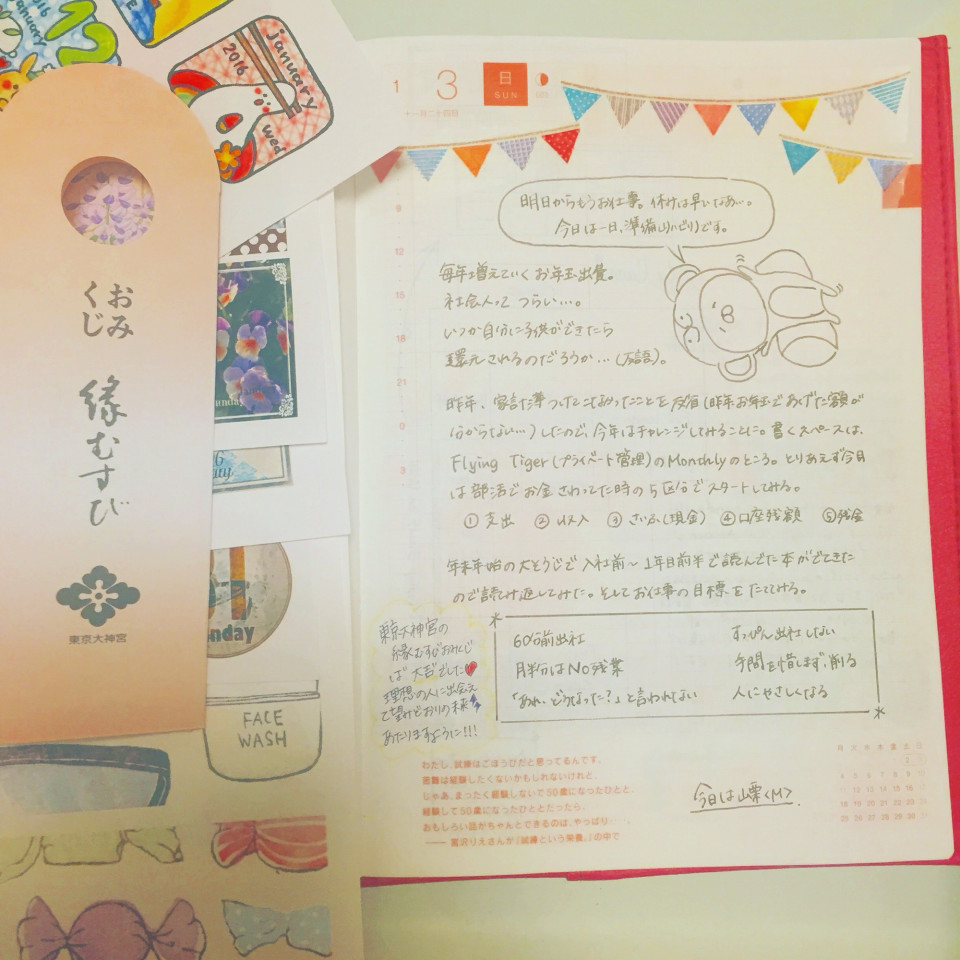 2016
January
january
2016
wed
おみくじ
縁むすび
東京大神宮
FACE
WASH
1 3 日
SUN
9
12
15
18
21
0
3
明日からもうお仕事。休みは早いなあ…。
今日は一日、準備(リハビリ)です。
毎年増えていくお年玉出費。
社会人ってつらい…。
いつか自分に子供ができたら
還元されるのだろうか…(切語)。
昨年、家計簿つけてこなかったことを反省(昨年お年玉であげた額が
分からない…)したので、今年はチャレンジしてみることに。書くスペースは、
Flying Tiger(プライベート管理)のMonthlyのところ。とりあえず今月
は部活でお金さわってた時の5区分でスタートしてみる。
①支出 ②収入 ③さいふ(現金) ④口座残額 ⑤残金
年末年始の大そうじで入社前〜1年目前半で読んでた本がでてきた
ので読み返してみた。そしてお仕事の目標をたててみる。
60分前出社
月半分はNo残業
「あれ、どうなった?」と言われない
すっぴん出社しない
手間を惜しまず削る
人にやさしくなる
東京大神宮の
縁むすびおみくじ
は大吉でした
理想の人に出会え
て望みどおりの未来
あたりますように!!!
わたし、試練はごほうびだと思ってるんです。
困難は経験したくないかもしれないけれど、
じゃあ、まったく経験しないで50歳になったひとと、
経験して50歳になったひとだったら、
おもしろい話がちゃんとできるのは、やっぱり
—— 宮沢りえさんが『試練という栄養。』の中で
今日は山栗〈M〉
月 火 水 木 金 土 日